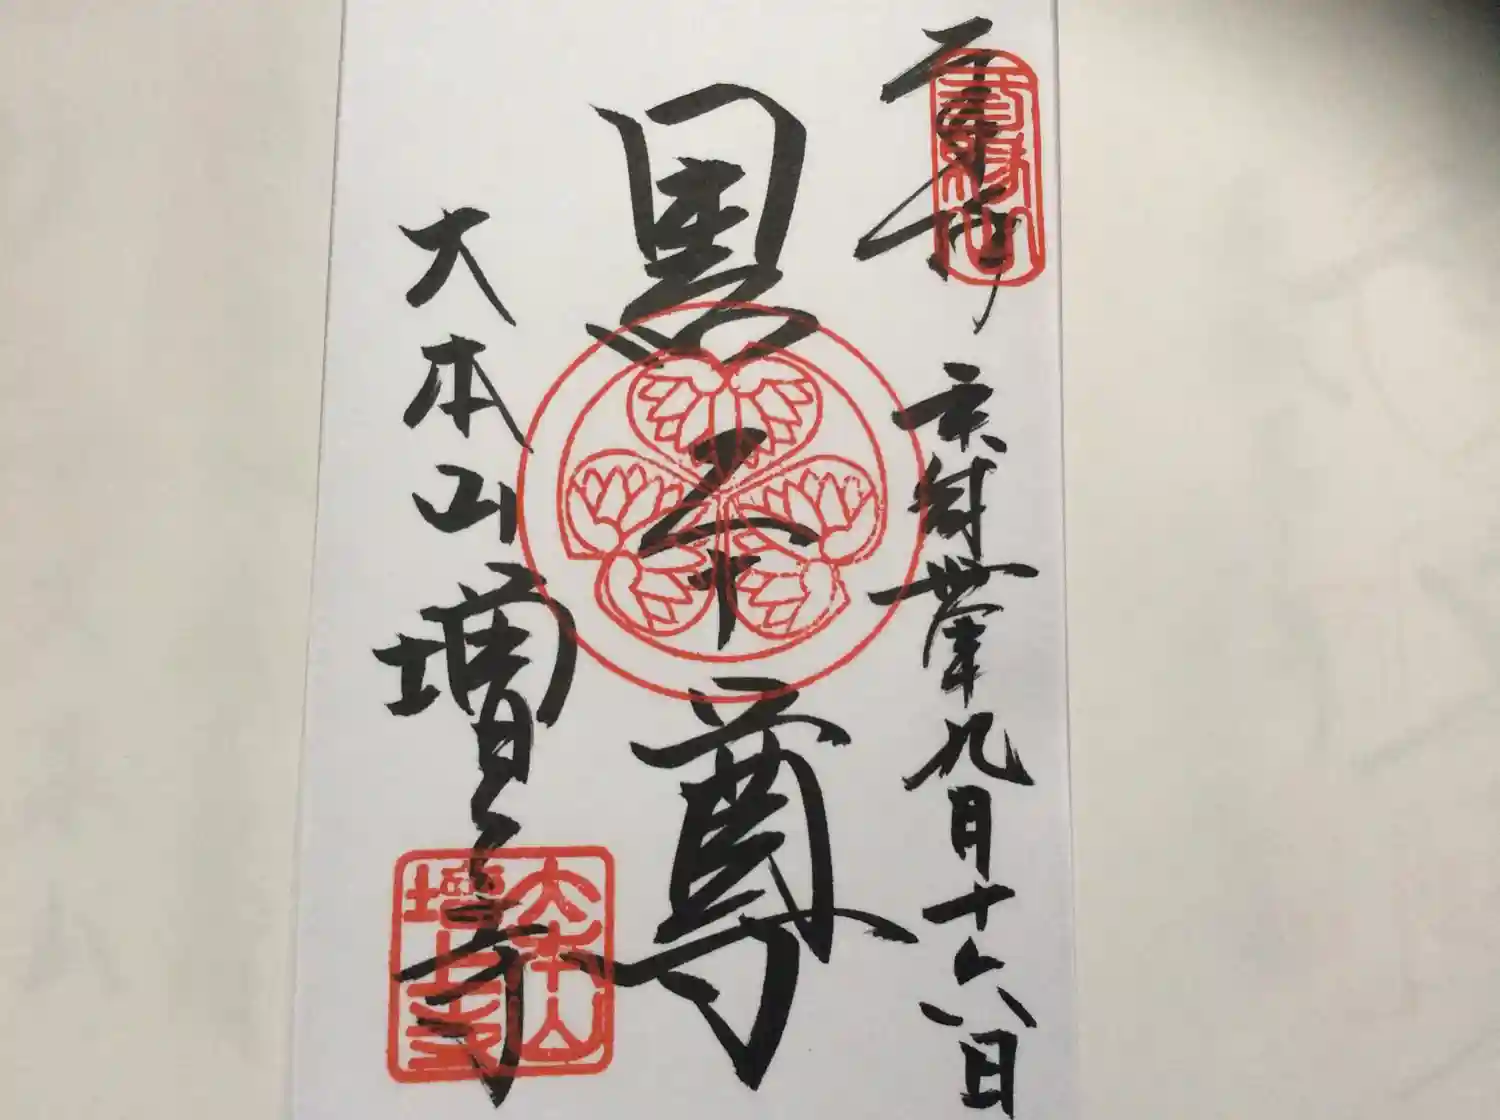 三縁山
奉拝
平成丗年九月十六日
黒本尊
大本山増上寺
大本山
増上寺